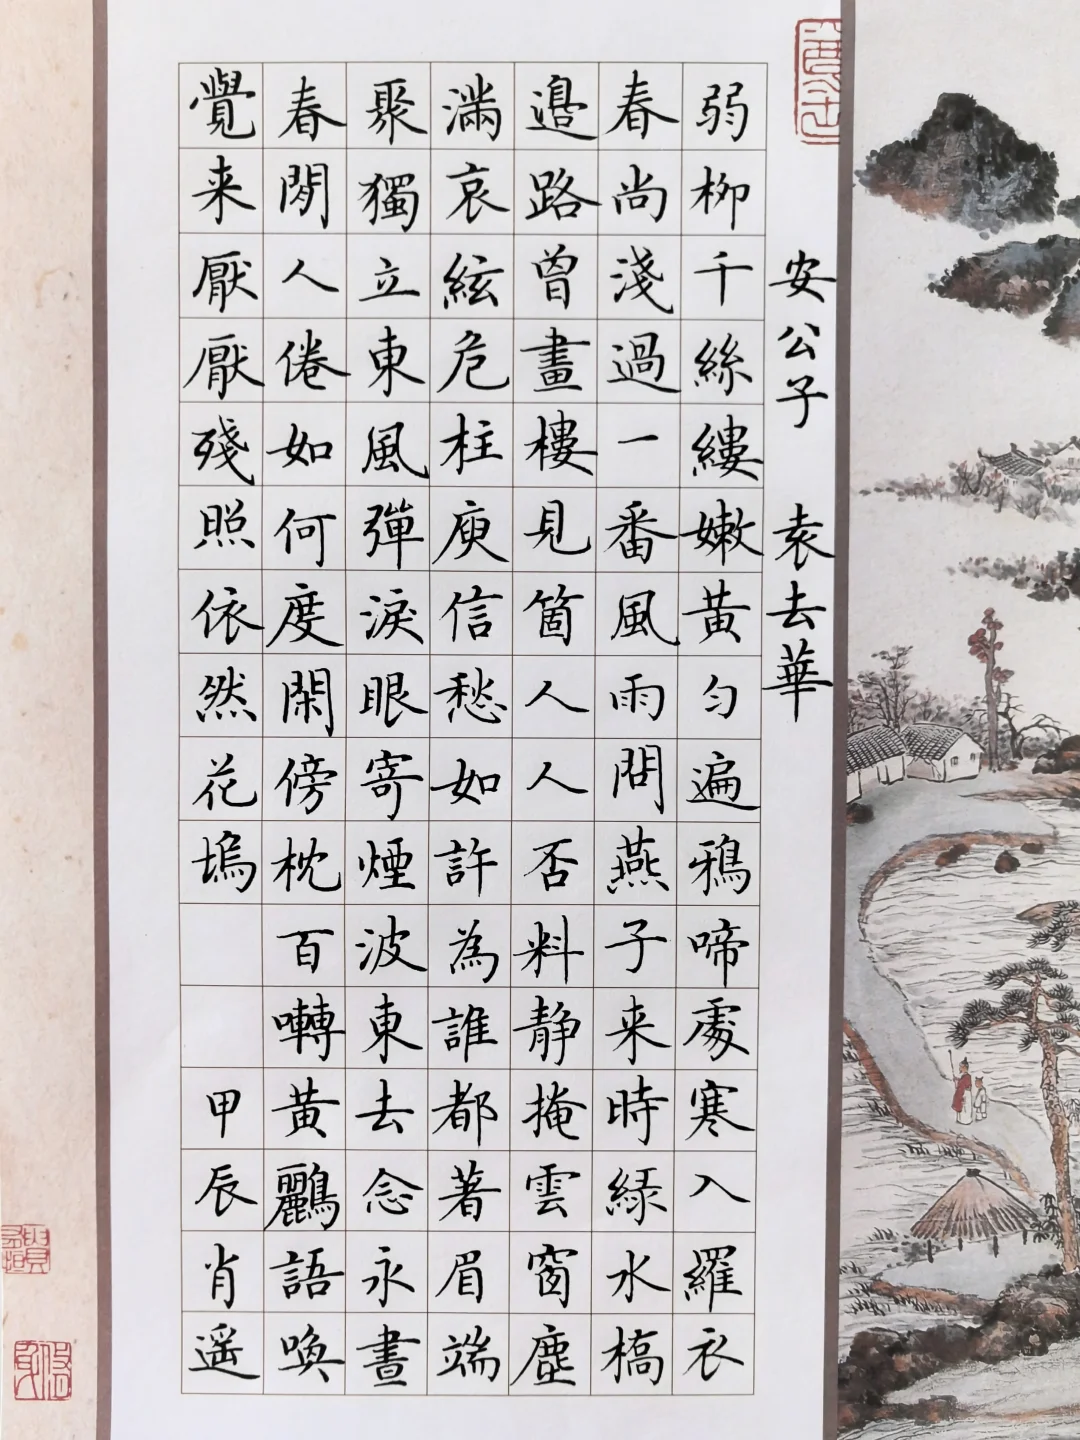 安公子 袁去華
弱柳千絲縷嫩黃勻遍鴉啼處寒入羅衣
春尚淺過一番風雨問燕子來時緑水橋
邉路曾畫樓見箇人人否料静掩雲窗塵
滿哀絃危柱庾信愁如許為誰都著眉端
聚獨立東風彈淚眼寄煙波東去念永晝
春閒人倦如何度閑傍枕百囀黃鸝語喚
覺来厭厭殘照依然花塢
甲辰肖遥